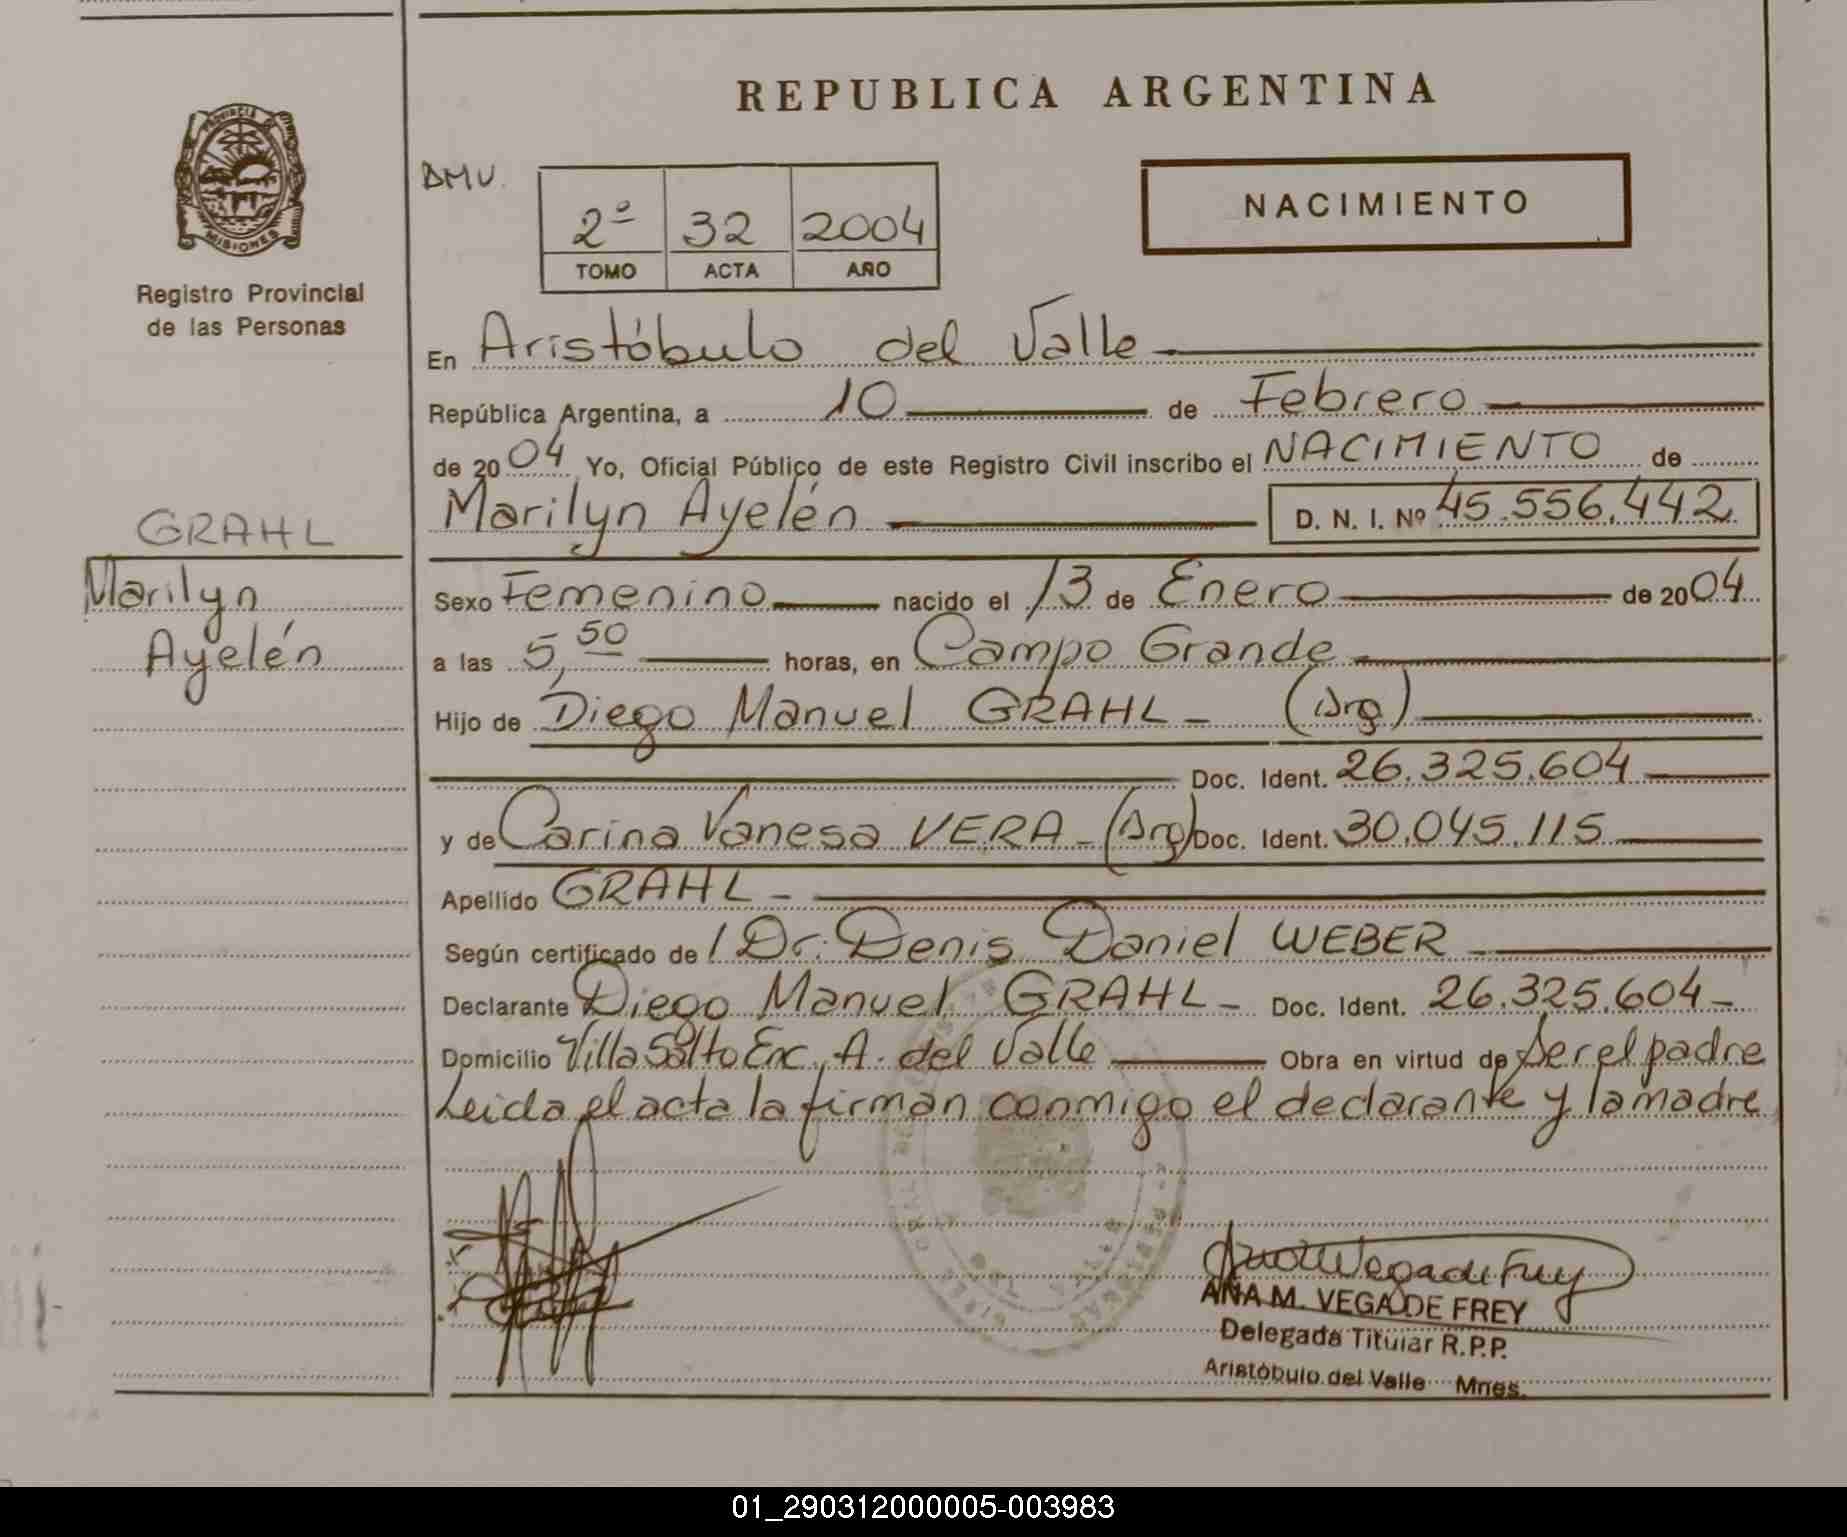 REPUBLICA ARGENTINA
PROVINCIA DE
MISIONES
Registro Provincial
de las Personas
DMV.
2º 32 2004
TOMO ACTA AÑO
NACIMIENTO
En Aristóbulo del Valle
República Argentina, a 10 de Febrero
de 2004 Yo, Oficial Público de este Registro Civil inscribo el NACIMIENTO de
Marilyn Ayelén D. N. I. Nº 45.556.442
GRAHL
Marilyn
Ayelén
Sexo Femenino nacido el 13 de Enero de 2004
a las 5,50 horas, en Campo Grande
Hijo de Diego Manuel GRAHL - (Arg)
Doc. Ident. 26.325.604
y de Carina Vanesa VERA - (Arg) Doc. Ident. 30.045.115
Apellido GRAHL -
Según certificado de l Dr. Denis Daniel WEBER -
Declarante Diego Manuel GRAHL - Doc. Ident. 26.325.604 -
Domicilio Villa Salto Enc. A. del Valle Obra en virtud de Ser el padre
Leida el acta la firman conmigo el declarante y la madre
ANA M. VEGA DE FREY
Delegada Titular R.P.P.
Aristóbulo del Valle Mnes.
01_290312000005-003983